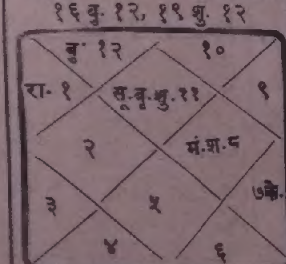 १६ बु. १२, १९ शु. १२
बु. १२ १०
रा. १ सू.बृ.शु. ११ ९
२ मं.श.८
३ ५ ७के.
४ ६